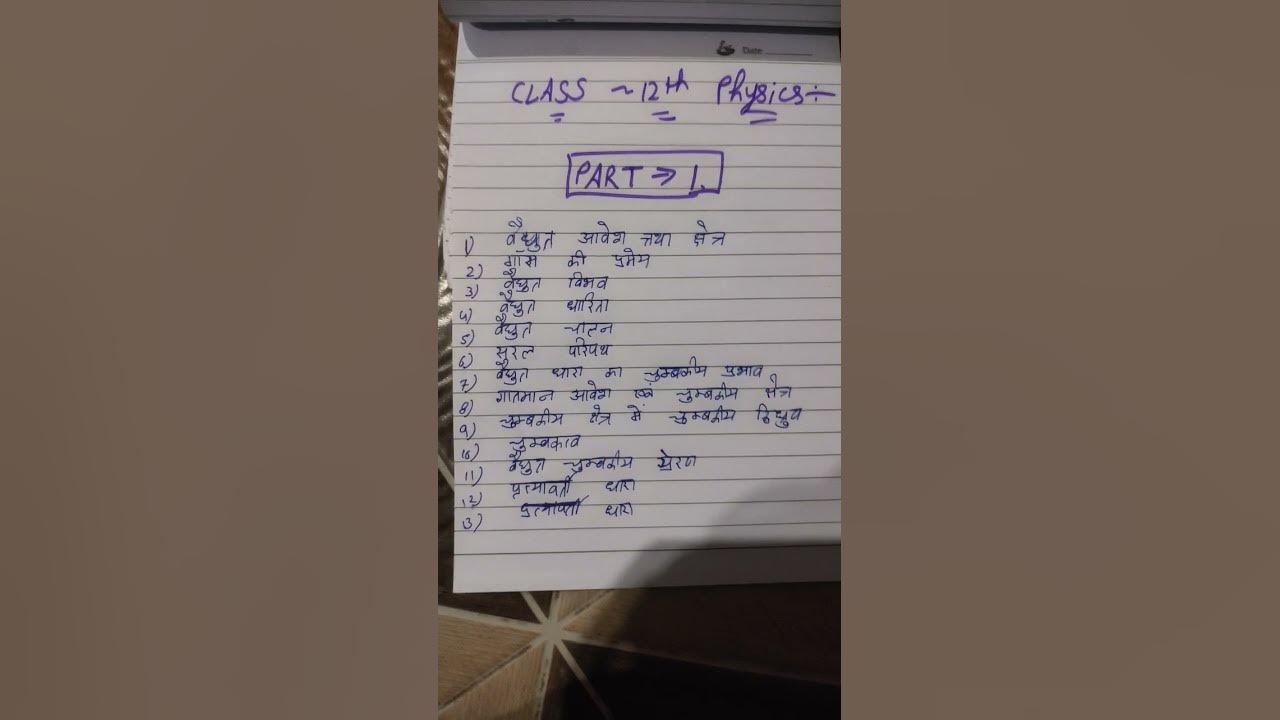 Date
CLASS ~ 12th Physics ÷
PART ⇒ 1.
1) वैद्युत आवेश तथा क्षेत्र
2) गॉस की प्रमेय
3) वैद्युत विभव
4) वैद्युत धारिता
5) वैद्युत चालन
6) सरल परिपथ
7) वैद्युत धारा का चुम्बकीय प्रभाव
8) गतिमान आवेश एवं चुम्बकीय क्षेत्र
9) चुम्बकीय क्षेत्र में चुम्बकीय द्विध्रुव
10) चुम्बकत्व
11) वैद्युत चुम्बकीय प्रेरण
12) प्रत्यावर्ती धारा
13) प्रत्यावर्ती धारा